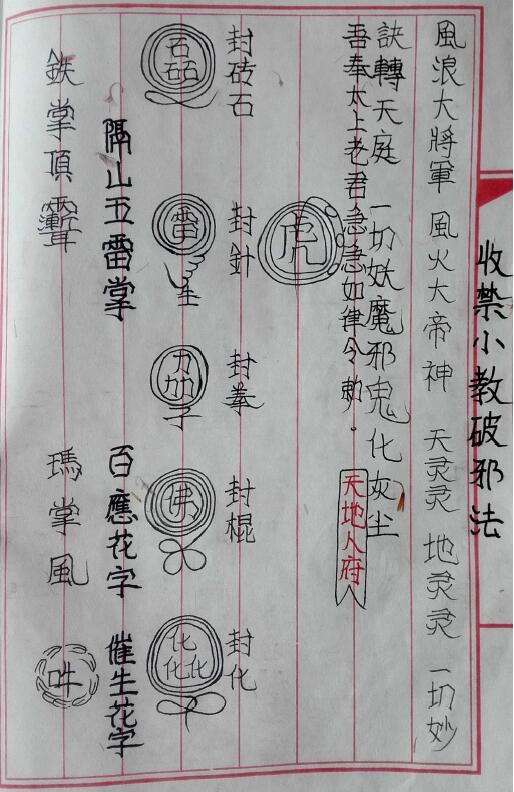 收禁小教破邪法
風浪大將軍 風火大帝神 天灵灵 地灵灵 一切妙
訣轉天庭 一切妖魔邪鬼化灰尘
吾奉太上老君急急如律令勅.
天地人府
虎
封砖石
封針
封拳
封棍
封化
石石石
雷
佛
化化化
隔山五雷掌
百應花字
催生花字
鉄掌頂
瑪掌風
吽